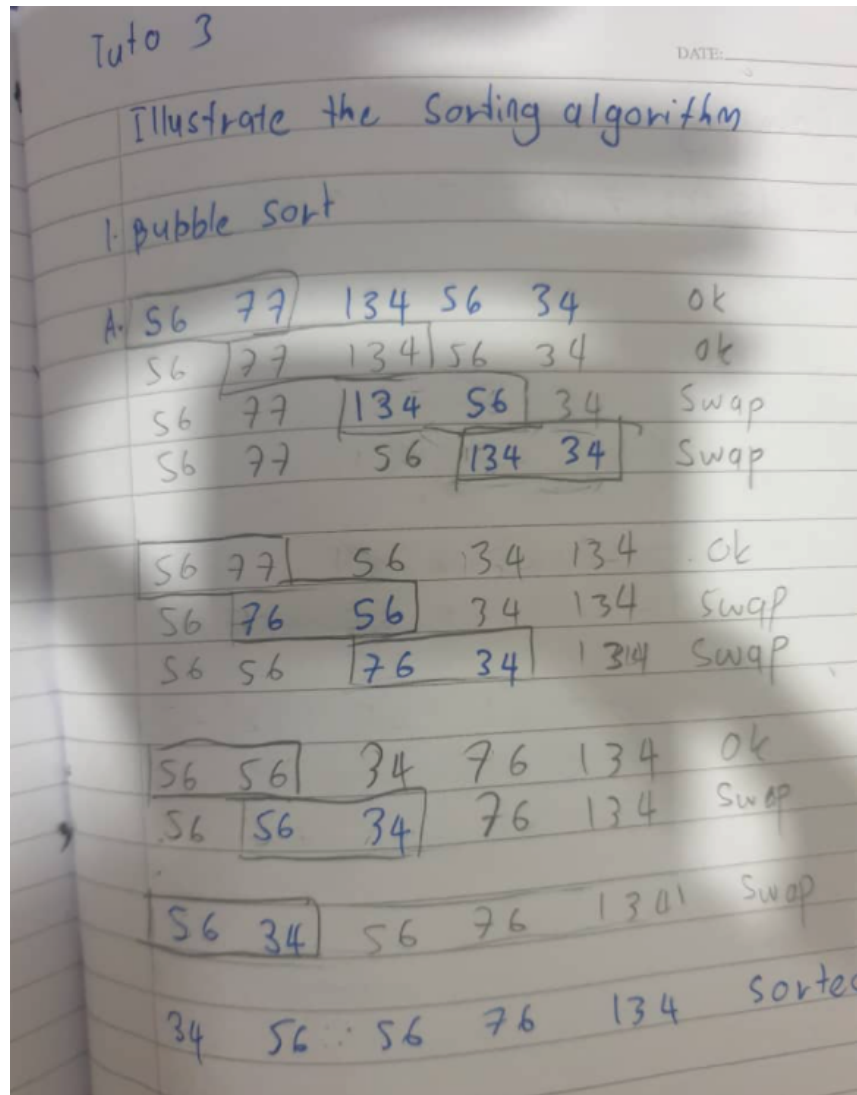 Tuto 3
DATE:
Illustrate the Sorting algorithm
1. Bubble sort
A. 56 77 134 56 34 ok
56 77 134 56 34 ok
56 77 134 56 34 Swap
56 77 56 134 34 Swap
56 77 56 34 134 Ok
56 76 56 34 134 Swap
56 56 76 34 134 Swap
56 56 34 76 134 Ok
56 56 34 76 134 Swap
56 34 56 76 134 Swap
34 56 56 76 134 Sorted